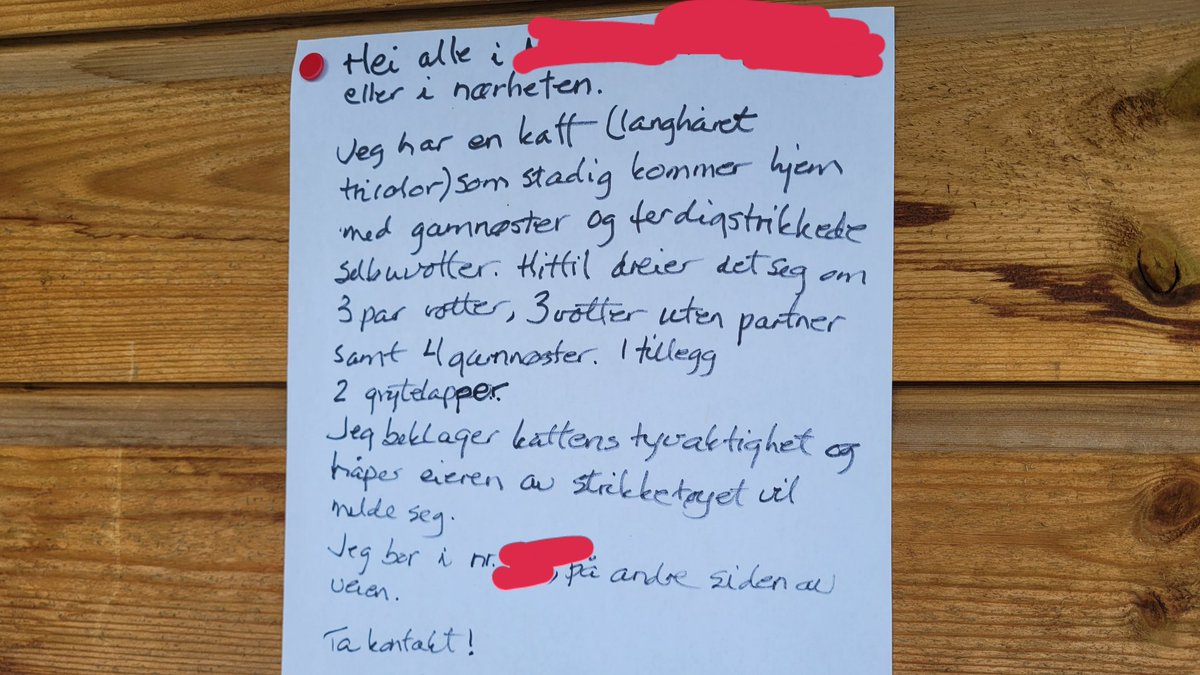 Hei alle i
eller i nærheten.
Jeg har en katt (langhåret
tricolor) som stadig kommer hjem
med garnnøster og ferdigstrikkede
selbuvotter. Hittil dreier det seg om
3 par votter, 3 votter uten partner
samt 4 garnnøster. I tillegg
2 grytelapper.
Jeg beklager kattens tyvaktighet og
håper eieren av strikketøyet vil
melde seg.
Jeg bor i nr. , på andre siden av
veien.
Ta kontakt!